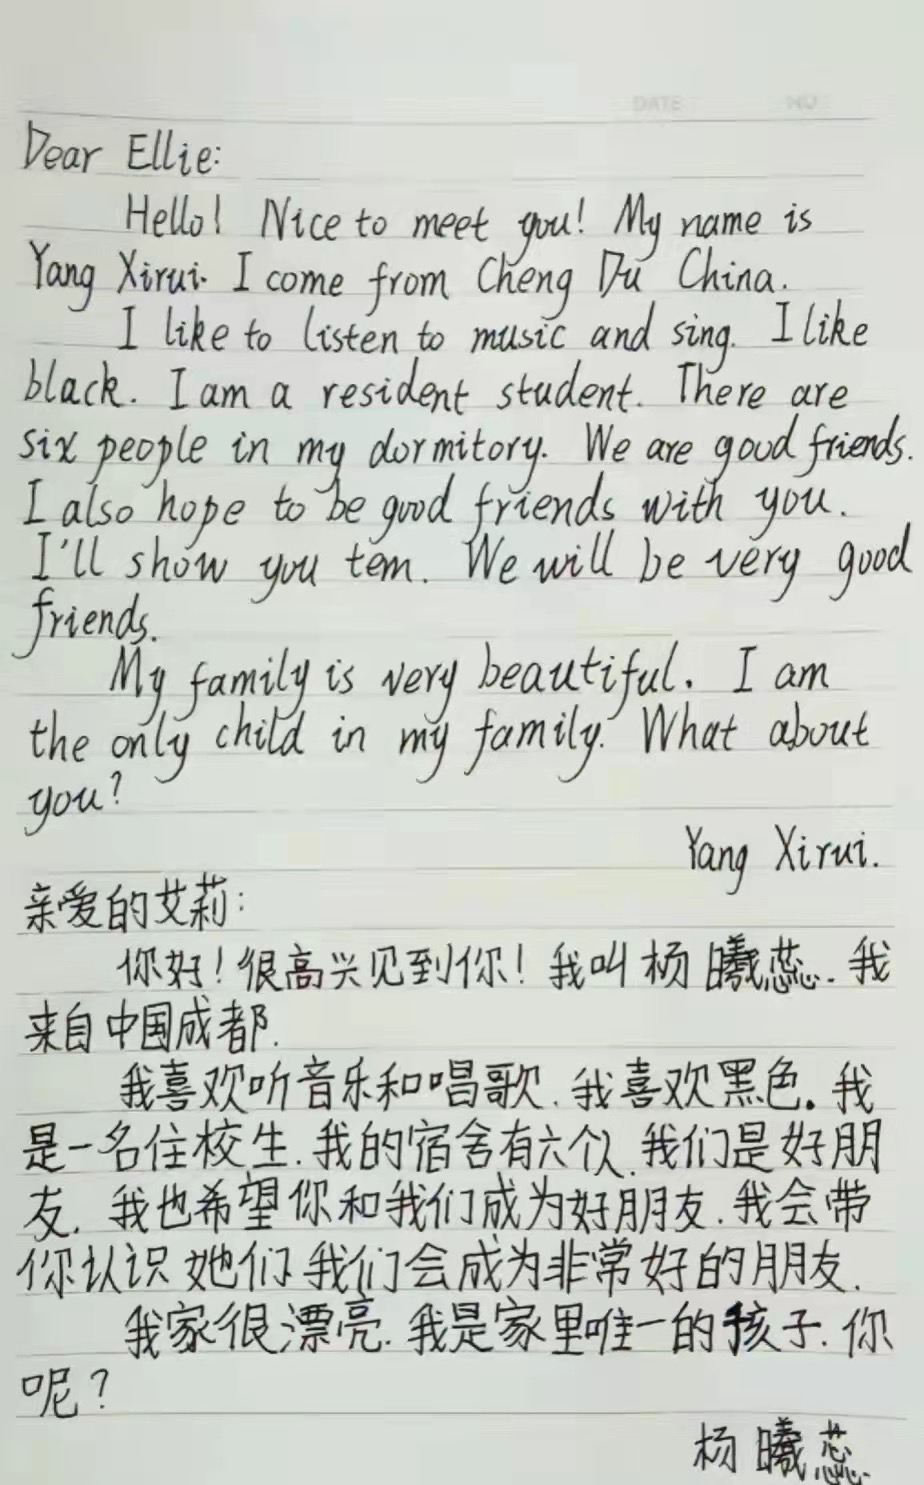 DATE NO
Dear Ellie:
Hello! Nice to meet you! My name is
Yang Xirui. I come from Cheng Du China.
I like to listen to music and sing. I like
black. I am a resident student. There are
six people in my dormitory. We are good friends.
I also hope to be good friends with you.
I'll show you tem. We will be very good
friends.
My family is very beautiful. I am
the only child in my family. What about
you?
Yang Xirui.
亲爱的艾莉:
你好!很高兴见到你!我叫杨曦蕊.我
来自中国成都.
我喜欢听音乐和唱歌.我喜欢黑色。我
是一名住校生.我的宿舍有六个人.我们是好朋
友.我也希望你和我们成为好朋友.我会带
你认识她们.我们会成为非常好的朋友.
我家很漂亮.我是家里唯一的孩子.你
呢?
杨曦蕊